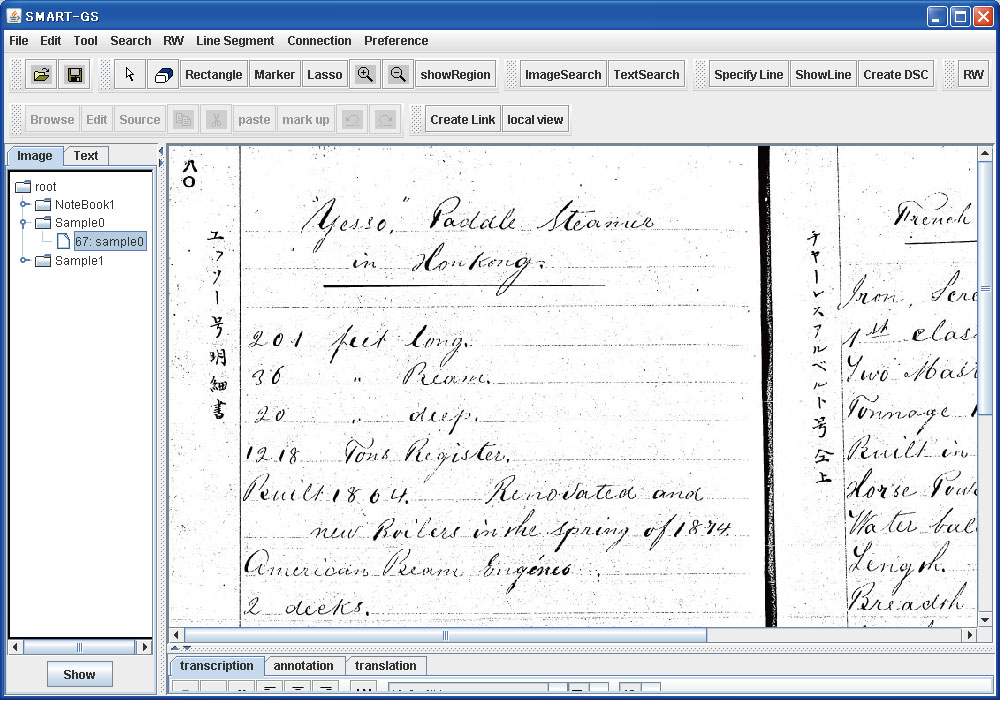 SMART-GS
File Edit Tool Search RW Line Segment Connection Preference
Rectangle Marker Lasso showRegion ImageSearch TextSearch Specify Line ShowLine Create DSC RW
Browse Edit Source paste mark up Create Link local view
Image Text
root
NoteBook1
Sample0
67: sample0
Sample1
Show
八〇
エッソー号明細書
"Yesso," Paddle Steamer
in Honkong.
201 feet long.
36 〃 Beam.
20 〃 deep.
1218 Tons Register.
Built 1864. Renovated and
new Boilers in the spring of 1874.
American Beam Engines.
2 decks.
チャーレスアルベルト号仝上
French
Iron, Scre
1st clas
Two Mast
Tonnage 1
Built in
Horse Pow
Water bal
Length.
Breadth
transcription annotation translation